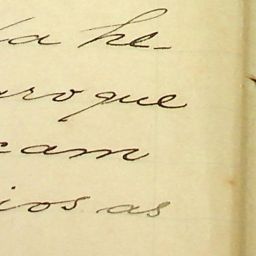 la he-
uro que
cam
ios as